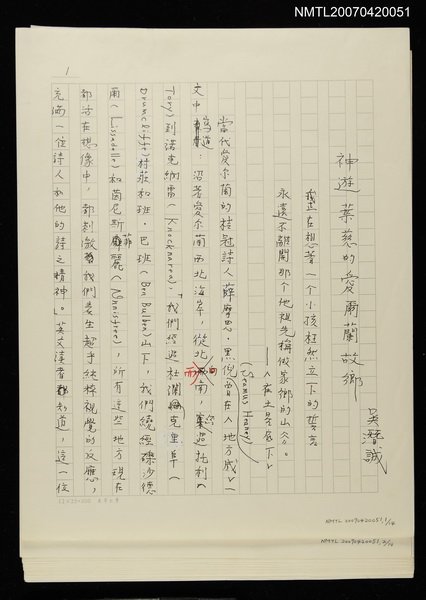 NMTL20070420051
1
神遊葉慈的愛爾蘭故鄉
吳潛誠
我還在想著一個小孩粒然立下的誓言
永遠不離開那個他祖先稱做家鄉的山谷。
——〈在土是居下〉
當代愛尔蘭的桂冠詩人薛摩思·黑倪(Seamus Heaney)曾在〈地方感〉一
文中寫道：沿著愛尔蘭西北海岸，從北而南，從托利(
Tory)到諾克納雷(Knocknarea)，「我們經過杜蘭克里夫(
Drumcliffe)村莊和班·巴班(Ben Bulben)山下，我們繞經礫沙德
爾(Lissadelle)和茵尼斯菲麗(Innisfree)，所有這些地方現在
都活在想像中，都刺激我們產生超乎純粹視覺的反應，
充滿一位詩人和他的詩之精神」。英文讀者都知道，這一位
NMTL20070420051,1/16
NMTL20070420051,2/16